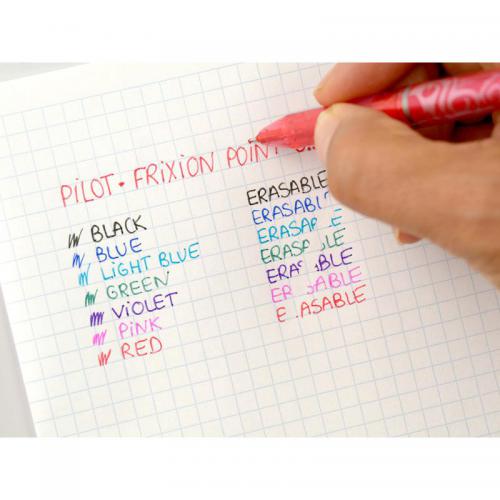 PILOT • FRIXION POINT
BLACK
BLUE
LIGHT BLUE
GREEN
VIOLET
PINK
RED
ERASABLE
ERASABL
ERASABLE
ERASABLE
ERASABLE
ERASABLE
E ASABLE